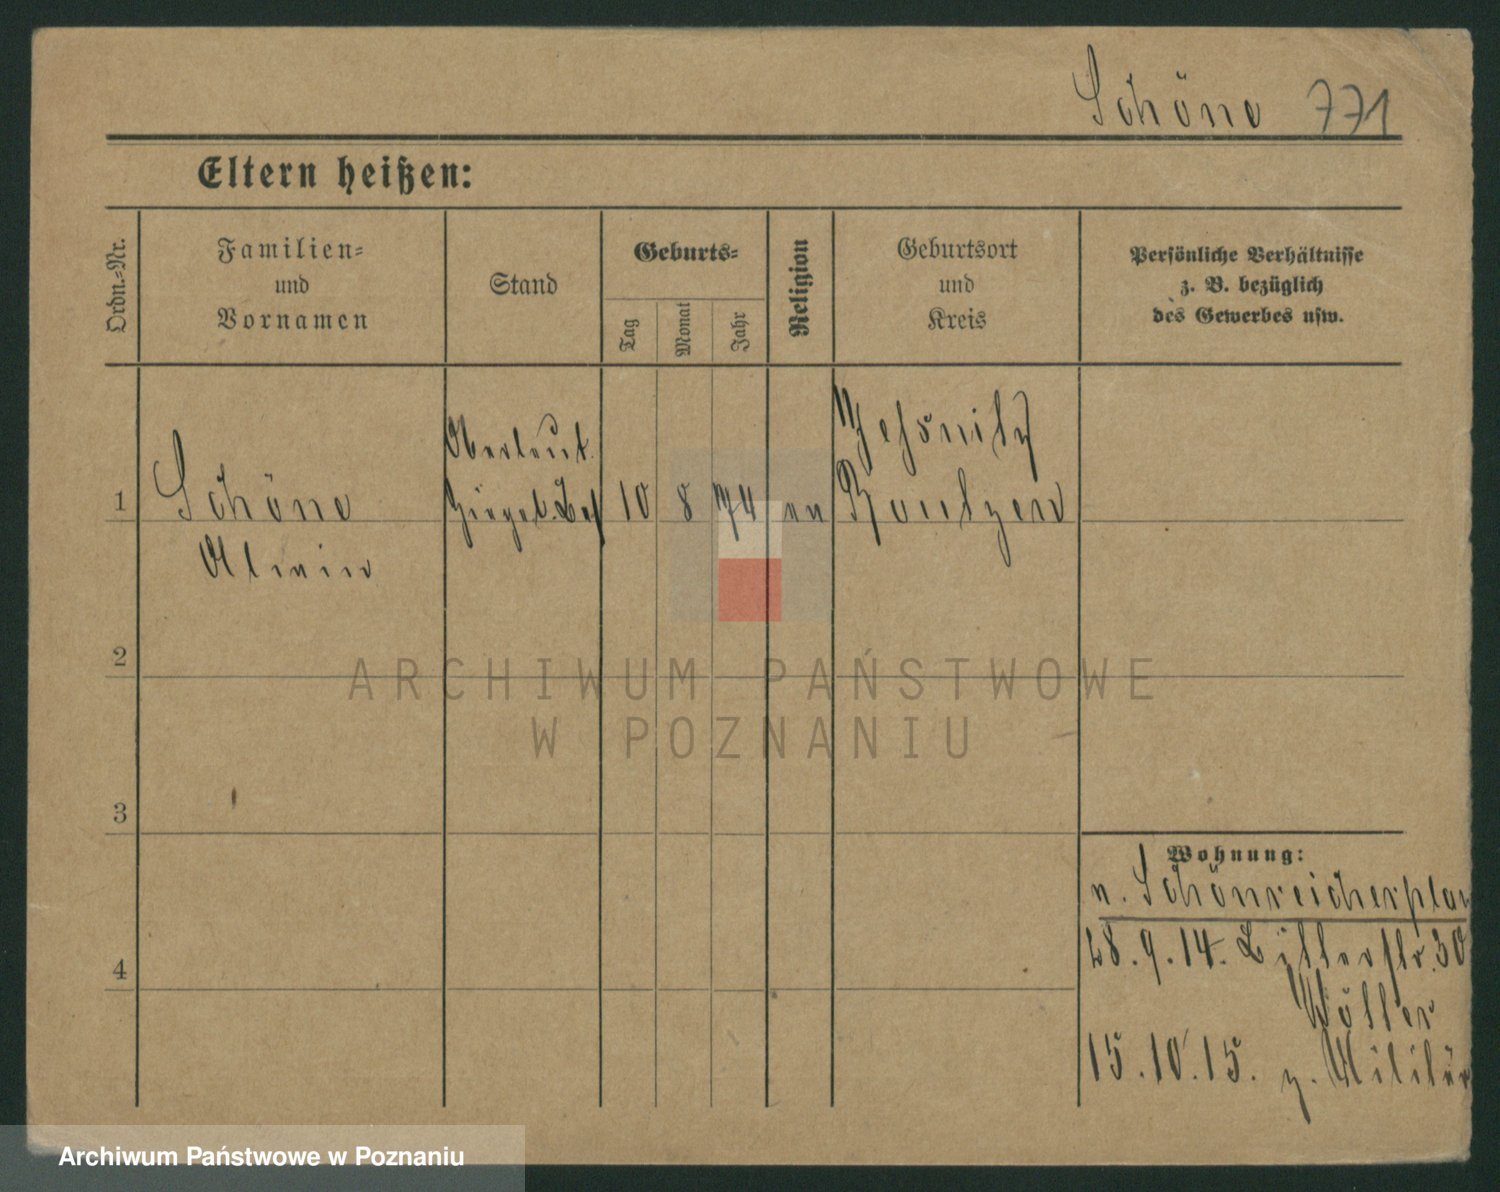 Schöne 771
Eltern heißen:
Ordn.-Nr.
Familien-
und
Vornamen
Stand
Geburts-
Tag
Monat
Jahr
Religion
Geburtsort
und
Kreis
Persönliche Verhältnisse
z. B. bezüglich
des Gewerbes usw.
Oberleut.
Jeßnitz
1 Schöne Ziegel. Bes 10 8 74 Bautzen
Alwin
2
3
4
Wohnung:
n. Schönreicherpla
28.9.14. str. 30
15.10.15. z. Militär
ARCHIWUM PAŃSTWOWE
W POZNANIU
Archiwum Państwowe w Poznaniu